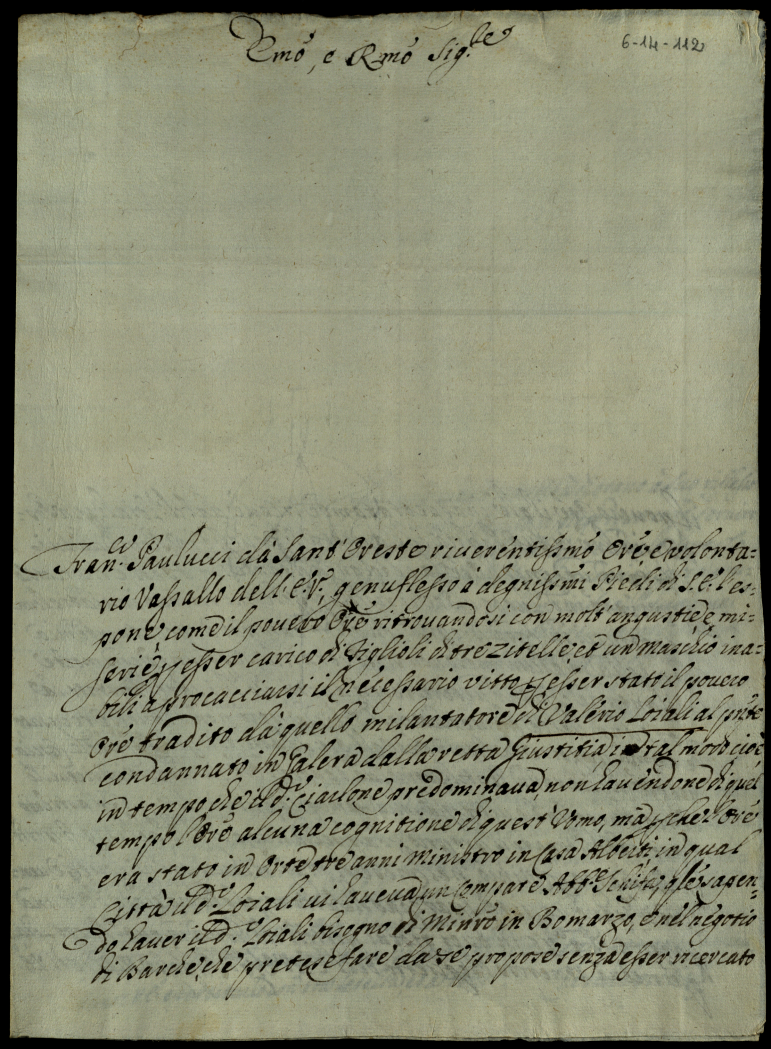 Emõ, e Rmõ Sig.re
6-14-112
Fran.co Paulucci dà Sant' Oreste riverentissimo Orẽ, e volonta=
rio Vassallo dell' E.V., genuflesso à degnissmi Piedi di S.E. l'es=
pone, come il povero Orẽ ritrovandosi con molt' angustie, e mi=
serie, p esser carico di Figlioli di tre zitelle, et un maschio ina=
bili a procacciarsi il necessario vitto, p esser stato il povero
Orẽ tradito dà quello milantatore di Valerio Loiali al pñte
condannato in Galera dalla retta Giustitia in tal modo cioè
in tempo che il d.o Ciarlone predominava, non havendone di quel
tempo l'Orẽ alcuna cognitione di quest' Uomo, mà pche l'Orẽ
era stato in Orte tre anni Ministro in Casa Alberti, in qual
Città il d.o Loiali vi haveva un Compare Abb.e qle sapen=
do haver il d.o Loiali bisogno di Minrõ in Bomarzo, e nel negotio
di Barche, che pretese fare da se propose senza esser ricercato